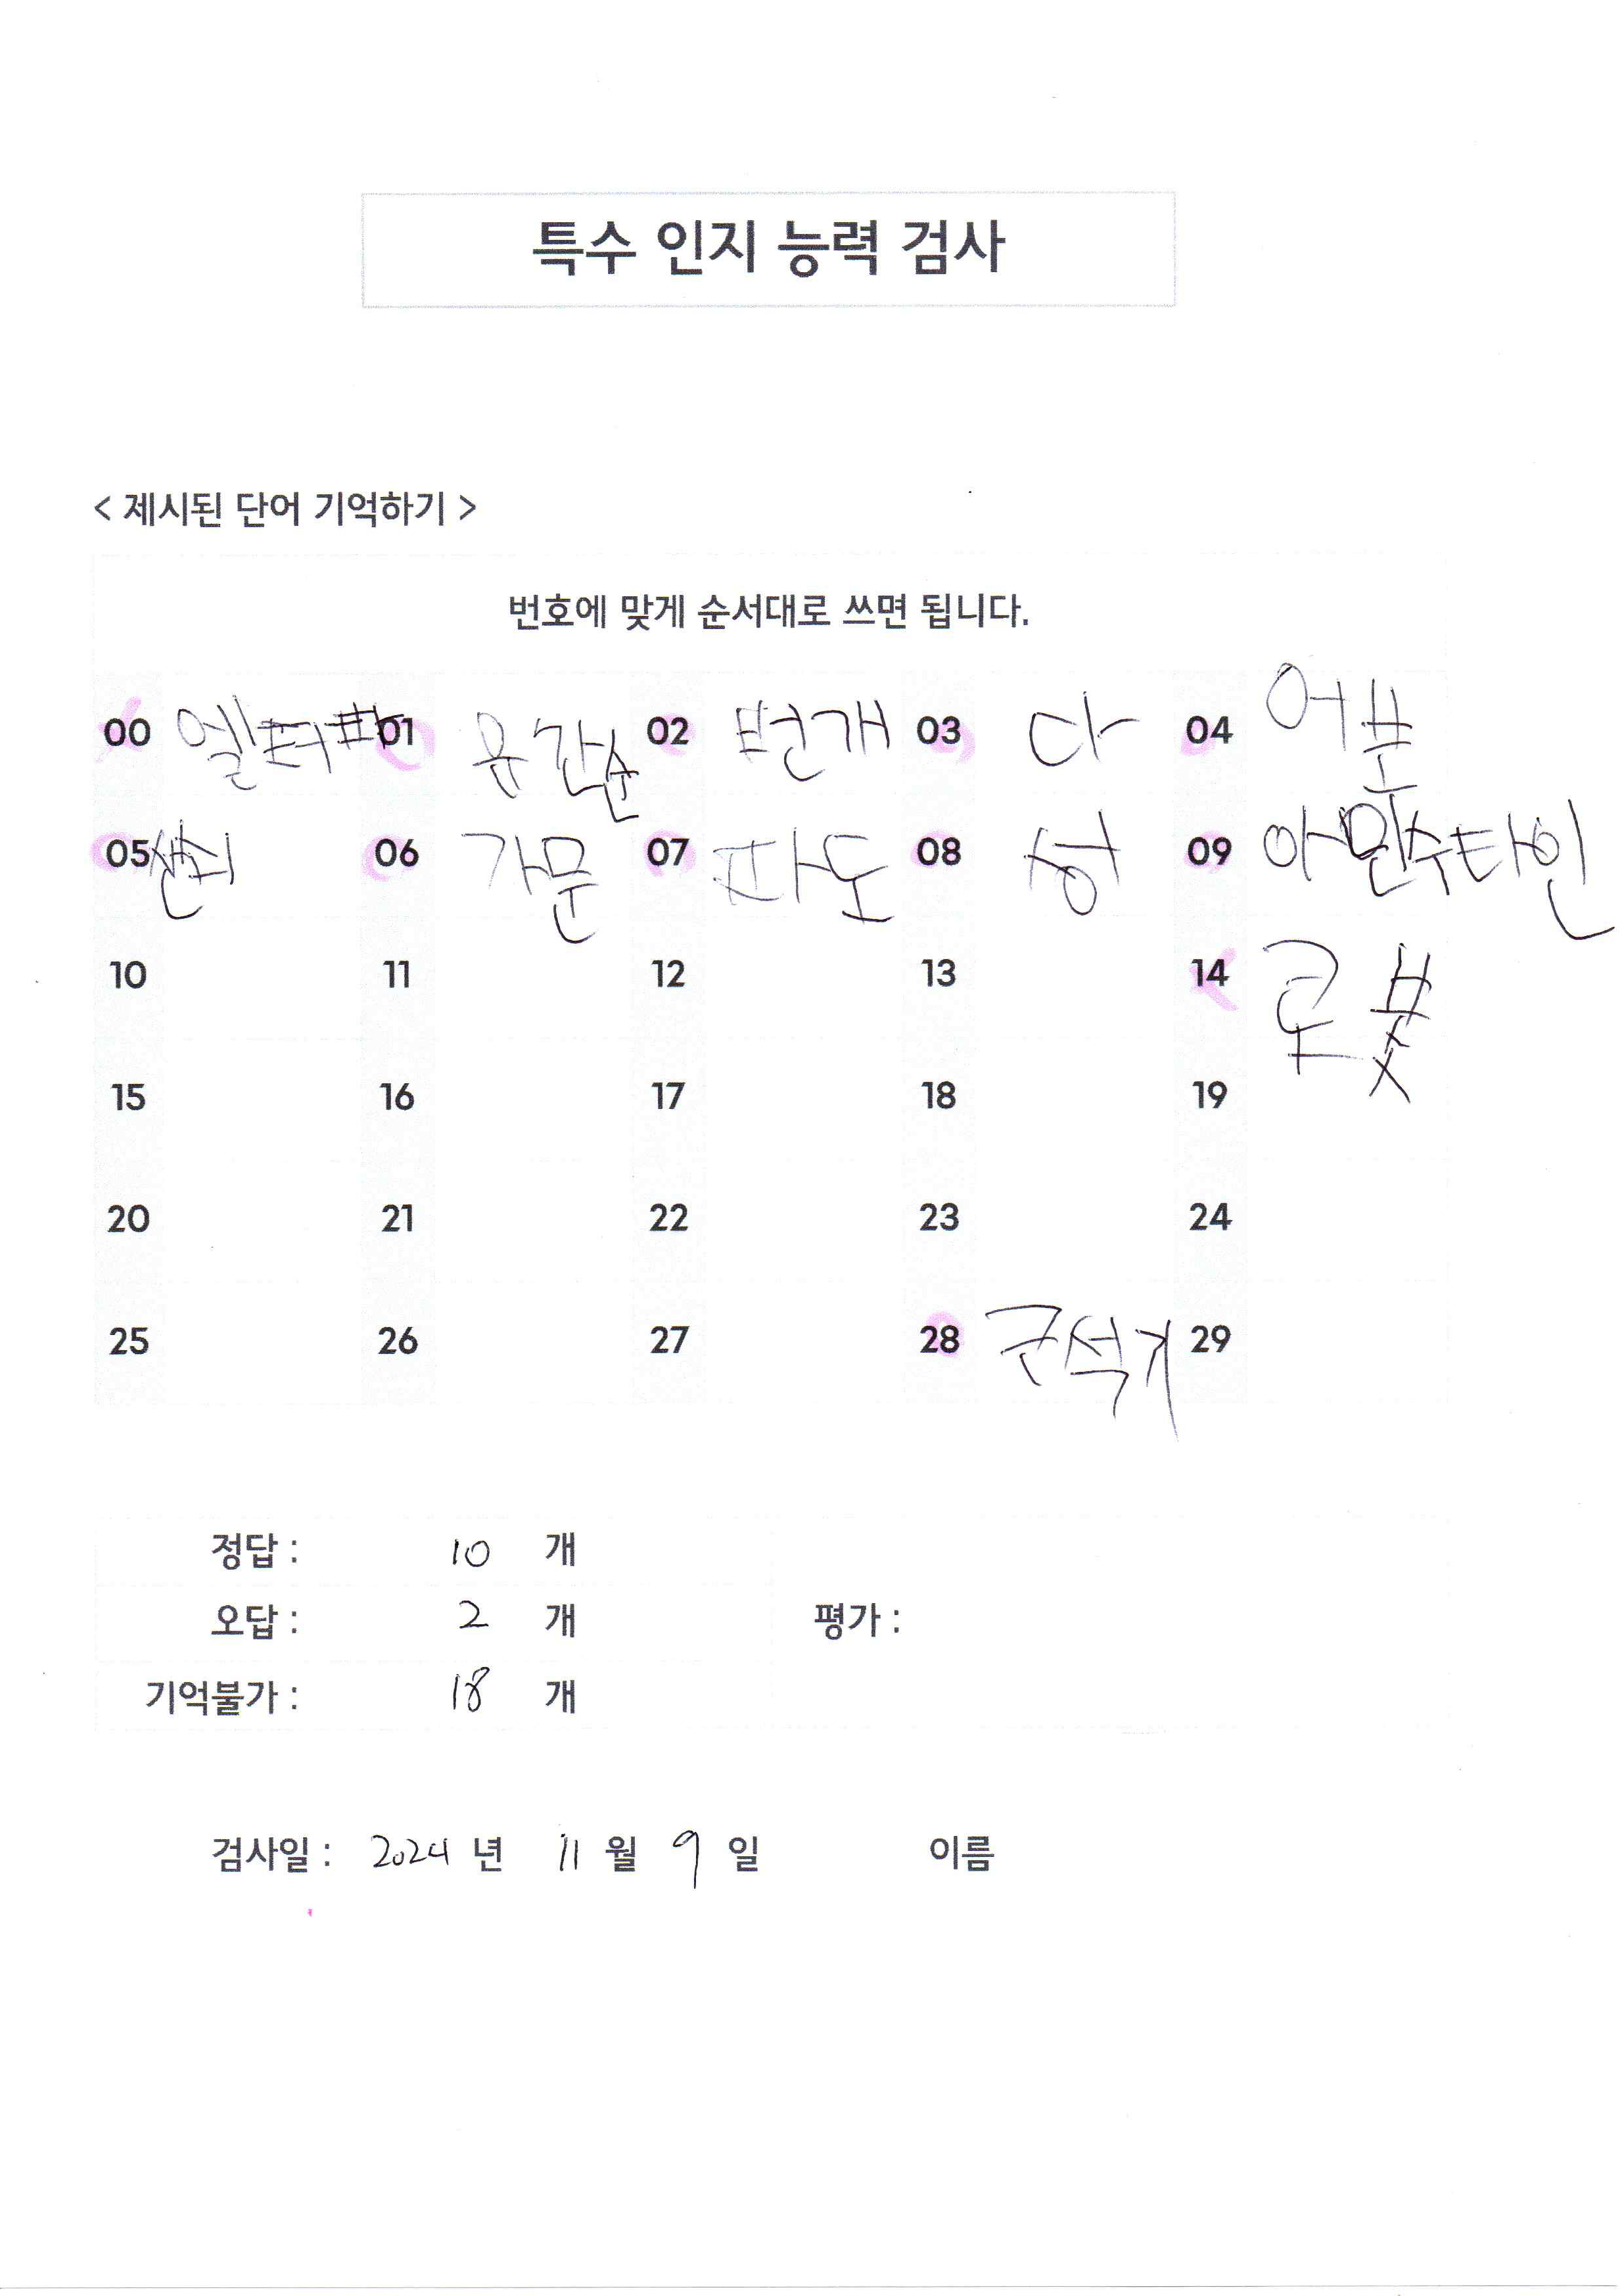 특수 인지 능력 검사
< 제시된 단어 기억하기 >
번호에 맞게 순서대로 쓰면 됩니다.
00 01 02 번개 03 다 04 어부
05 06 가문 07 파도 08 허 09
10 11 12 13 14 로봇
15 16 17 18 19
20 21 22 23 24
25 26 27 28 근석기 29
정답 : 10 개
오답 : 2 개 평가 :
기억불가 : 18 개
검사일 : 2024 년 11 월 9 일 이름